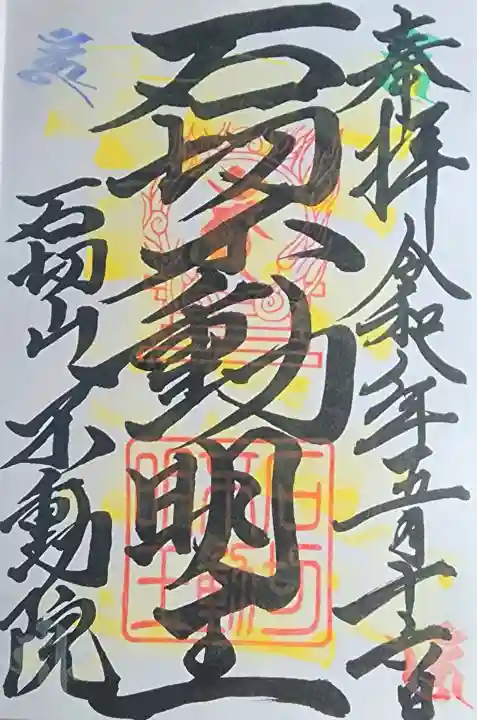 奉拝 令和 年五月十六日
石切不動明王
石切山不動院